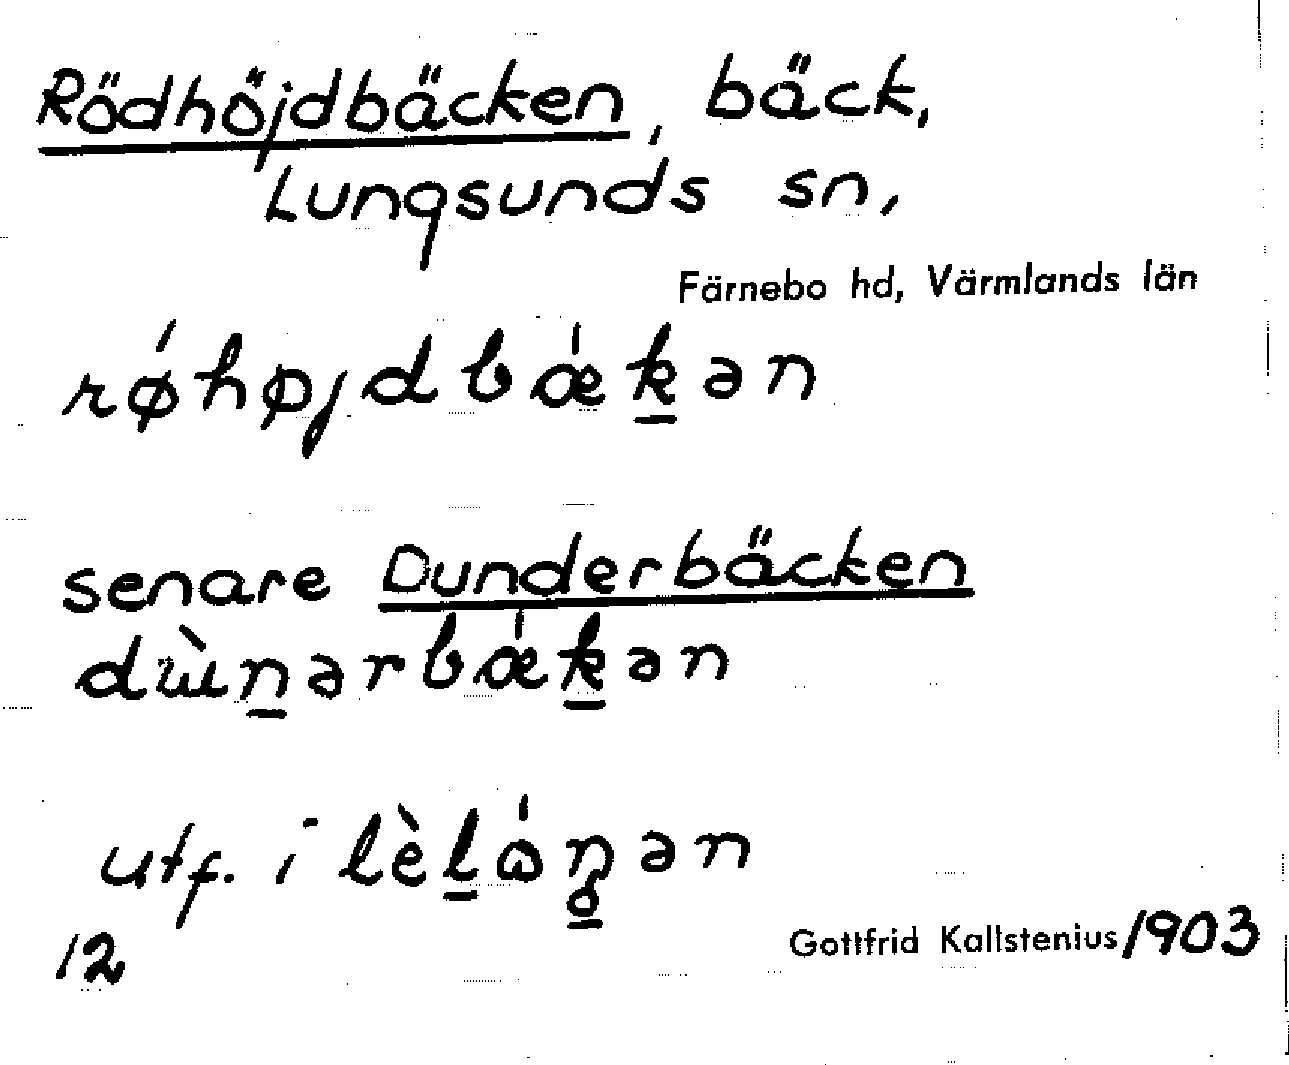 Rödhöjdbäcken, bäck,
Lungsunds sn,
Färnebo hd, Värmlands län
rǿhøjdbǽk̲ən
senare Dunderbäcken
dɯ̀n̲ərbǽk̲ən
utf. i lèl̲ɷ́ŋ̲ən
12
Gottfrid Kallstenius/1903